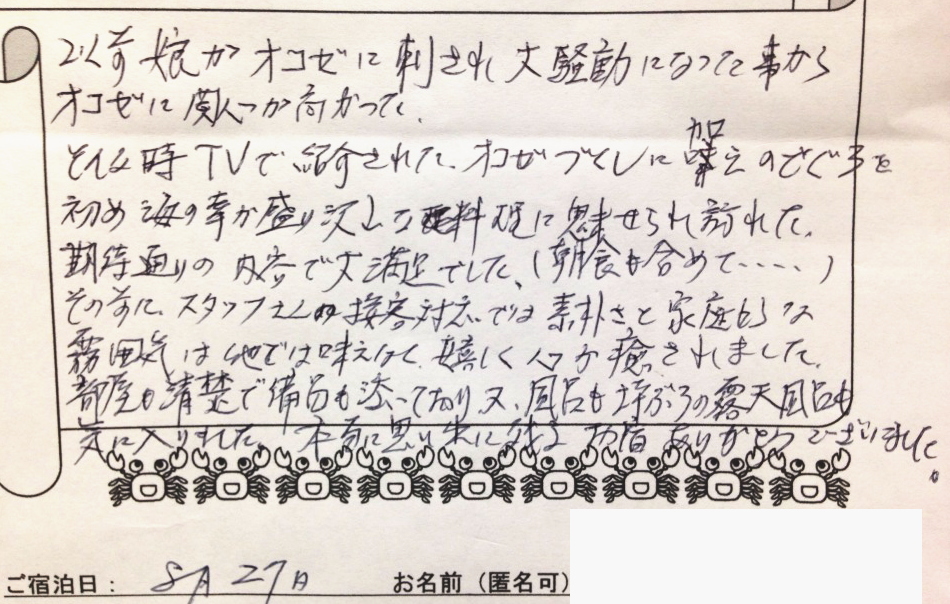 以前娘がオコゼに刺され大騒動になった事から
オコゼに関心が高かった。
そんな時TVで紹介された、オコゼづくしに加え のどぐろを
初め海の幸が盛り沢山な料理に魅せられ訪れた。
期待通りの内容で大満足でした、(朝食も含めて‥‥‥)
その前に、スタッフさんの接客対応では素朴さと家庭的な
雰囲気は他では味えなく嬉しく心が癒されました。
部屋も清楚で備品も添っており、又、風呂も坪ぶろの露天風呂も
気に入りました。本当に思い出に残るお宿ありがとうございました。
ご宿泊日： 8月27日 お名前（匿名可）